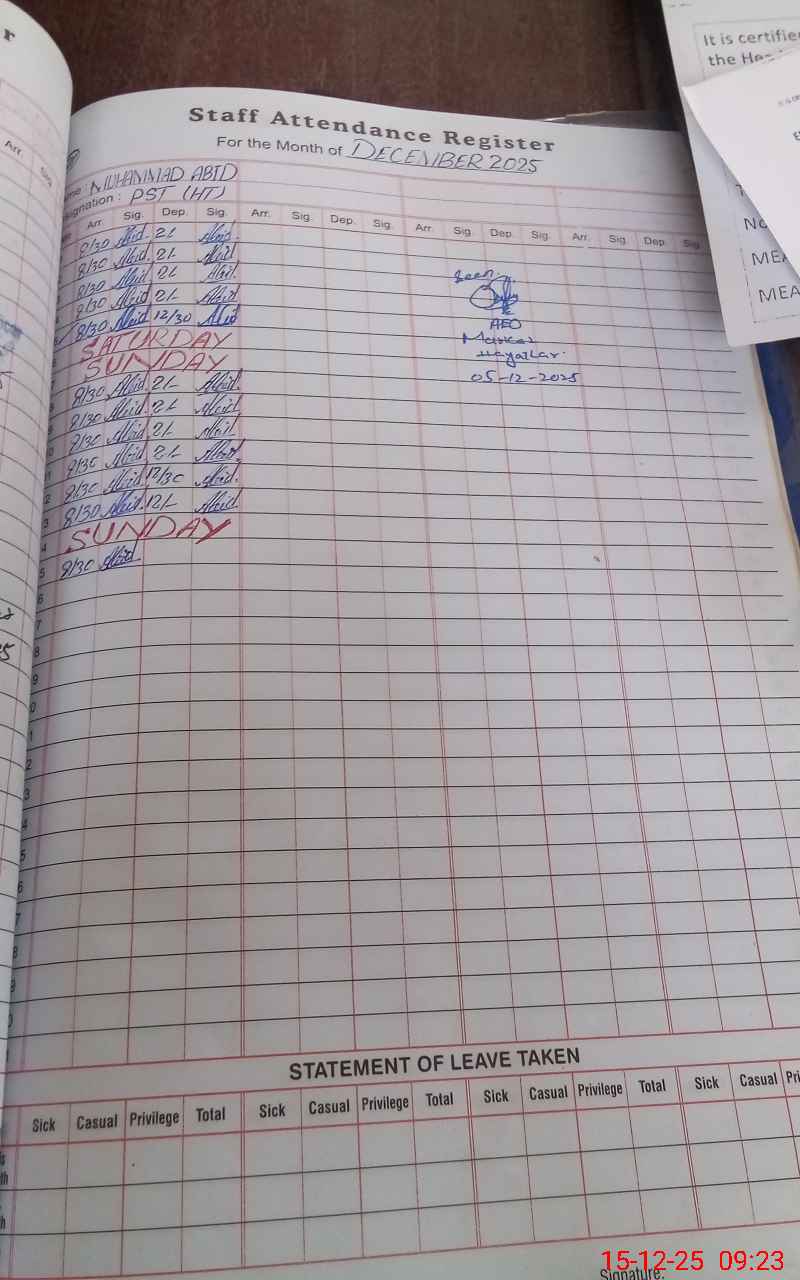 Staff Attendance Register
For the Month of DECEMBER 2025
MUHAMMAD ABID
Designation : PST (HT)
Arr. Sig. Dep. Sig. Arr. Sig. Dep. Sig. Arr. Sig. Dep. Sig. Arr. Sig. Dep. Sig.
8/30 Abid 2/- Abid
8/30 Abid 2/- Abid
8/30 Abid 2/- Abid
8/30 Abid 2/- Abid
8/30 Abid 12/30 Abid
SATURDAY
SUNDAY
8/30 Abid 2/- Abid
8/30 Abid 2/- Abid
8/30 Abid 2/- Abid
8/30 Abid 2/- Abid
8/30 Abid 12/30 Abid
8/30 Abid 12/- Abid
SUNDAY
8/30 Abid
Seen
AEO
Markaz
05-12-2025
STATEMENT OF LEAVE TAKEN
Sick Casual Privilege Total Sick Casual Privilege Total Sick Casual Privilege Total Sick Casual
Signature:
It is certifie
the
MEA
MEA
Arr.
15-12-25 09:23